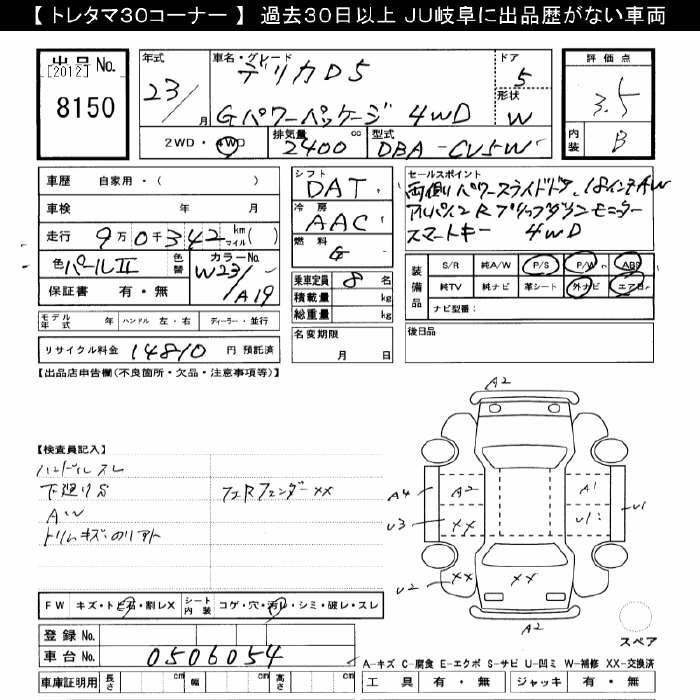 【 トレタマ30コーナー 】 過去30日以上 JU岐阜に出品歴がない車両
出品 No.
[2012]
8150
年式
23/
月
車名・グレード
デリカD5
Gパワーパッケージ 4WD
ドア
5
形状
W
2WD・4WD
排気量
2400 cc
型式
DBA-CV5W
評価点
3.5
内装
B
車歴 自家用・( )
車検 年 月
走行 9万0千342 km マイル( )
色 パールII 色替 カラーNo. W23/A19
保証書 有・無
シフト
DAT
冷房
AAC
燃料
G
乗車定員 8 名
積載量 kg
総重量 kg
セールスポイント
両側パワースライドドア、18インチAW
アルパインRフリップダウンモニター
スマートキー 4WD
装備品
S/R 純A/W P/S P/W ABS
純TV 純ナビ 革シート 外ナビ エアB
ナビ型番:
モデル年式 年 ハンドル 左・右 ディーラー・並行
名変期限
月 日
後日品
リサイクル料金 14810 円 預託済
【出品店申告欄(不良箇所・欠品・注意事項等)】
【検査員記入】
ハンドルスレ
下廻りS
フェRフェンダーXX
AW
トリムキズ
A2
A4
A2
A1
U3
XX
U1
U1
U2
XX
XX
A2
FW キズ・トビ石・割レX シート内装 コゲ・穴・汚レ・シミ・破レ・スレ
登録 No.
車台 No. 0506054
車庫証明用 長さ cm 幅 cm 高さ cm
スペア
A-キズ C-腐食 E-エクボ S-サビ U-凹ミ W-補修 XX-交換済
工具 有・無 ジャッキ 有・無